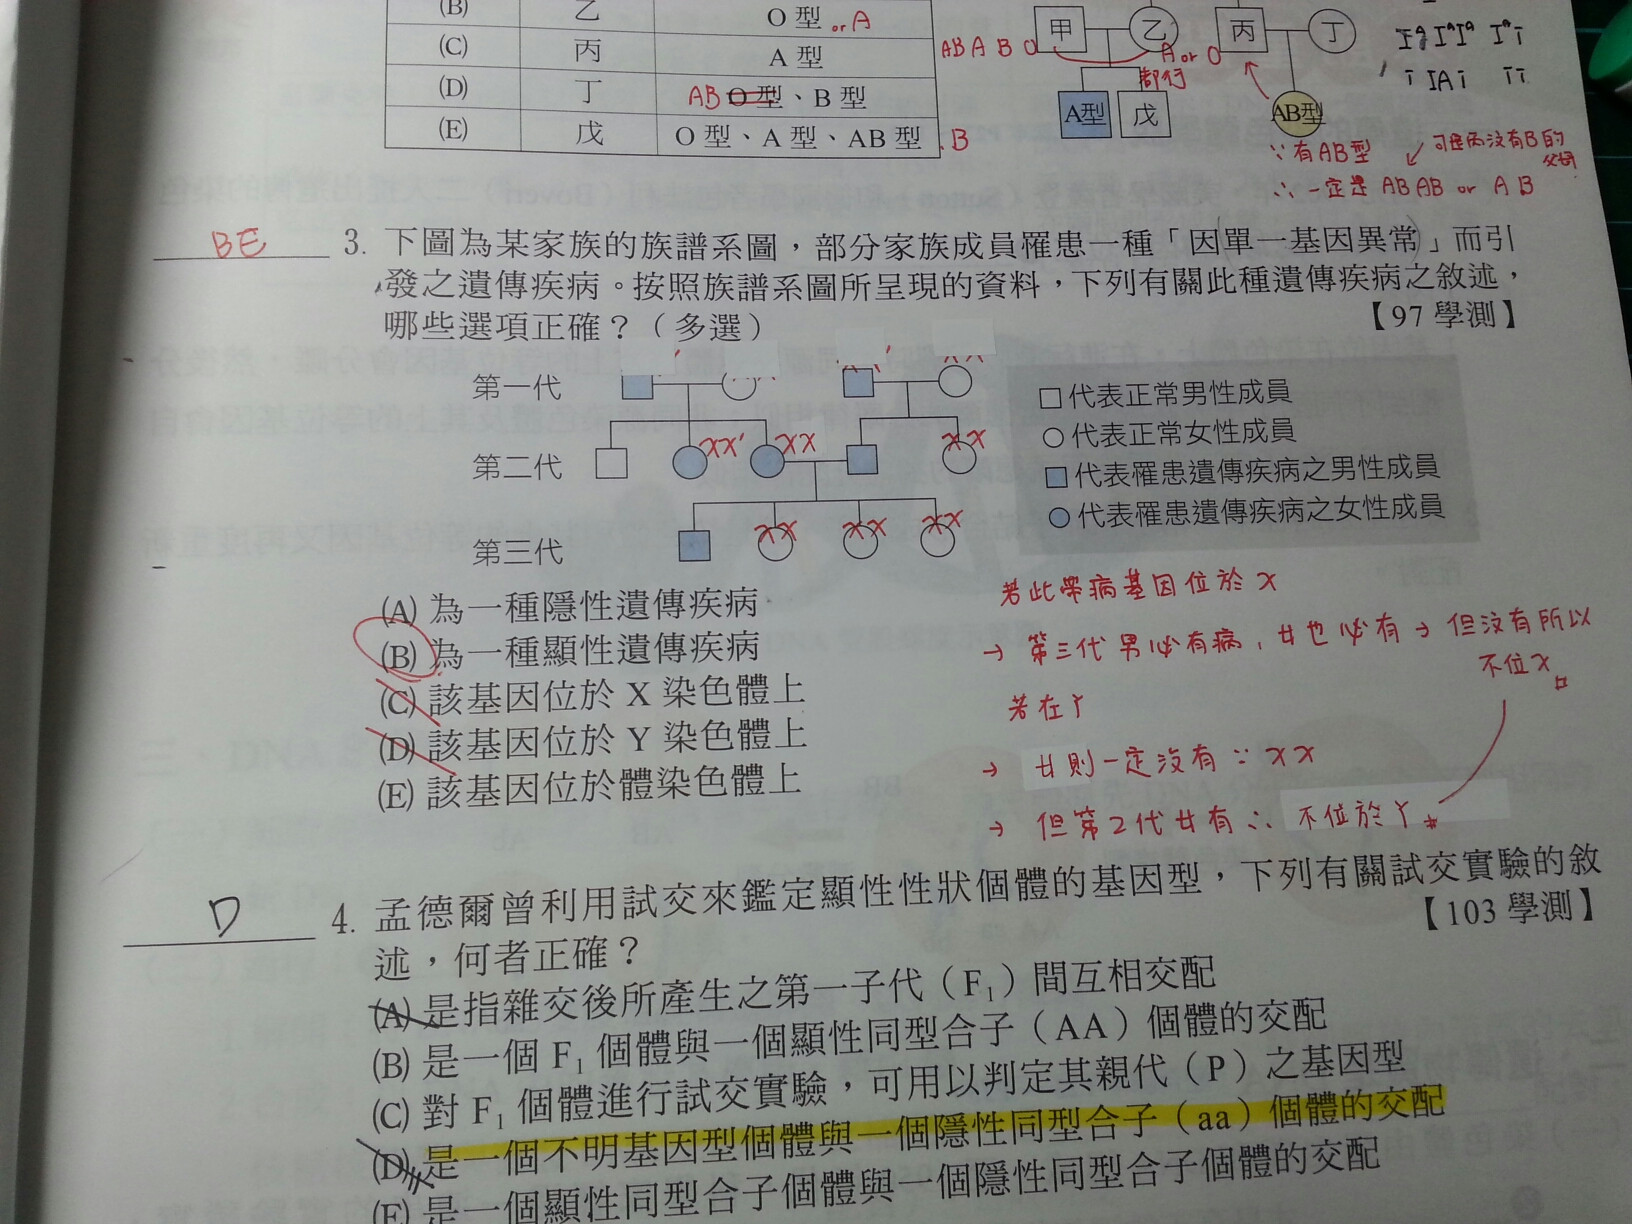 (B) 乙 O 型 or A
(C) 丙 A 型
(D) 丁 AB O 型、B 型
(E) 戊 O 型、A 型、AB 型 .B
甲 乙 丙 丁
AB A B O
A or O
都行
A型 戊 AB型
∵ 有AB型
∴ 一定是 AB AB or A B
BE 3. 下圖為某家族的族譜系圖，部分家族成員罹患一種「因單一基因異常」而引
發之遺傳疾病。按照族譜系圖所呈現的資料，下列有關此種遺傳疾病之敘述，
哪些選項正確？（多選） 【97 學測】
第一代
第二代 XX' XX XX
第三代 XX XX XX
□代表正常男性成員
○代表正常女性成員
□代表罹患遺傳疾病之男性成員
○代表罹患遺傳疾病之女性成員
(A) 為一種隱性遺傳疾病
(B) 為一種顯性遺傳疾病
(C) 該基因位於 X 染色體上
(D) 該基因位於 Y 染色體上
(E) 該基因位於體染色體上
若此帶病基因位於 X
→ 第三代男必有病，女也必有 → 但沒有所以
不位X
若在Y
→ 女則一定沒有 ∵ XX
→ 但第2代女有 ∴ 不位於Y
D 4. 孟德爾曾利用試交來鑑定顯性性狀個體的基因型，下列有關試交實驗的敘
述，何者正確？ 【103 學測】
(A) 是指雜交後所產生之第一子代（F₁）間互相交配
(B) 是一個 F₁ 個體與一個顯性同型合子（AA）個體的交配
(C) 對 F₁ 個體進行試交實驗，可用以判定其親代（P）之基因型
(D) 是一個不明基因型個體與一個隱性同型合子（aa）個體的交配
(E) 是一個顯性同型合子個體與一個隱性同型合子個體的交配